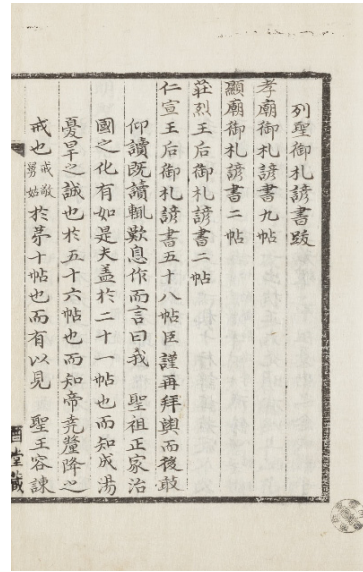 列聖御札諺書跋
孝廟御札諺書九帖
顯廟御札諺書二帖
莊烈王后御札諺書二帖
仁宣王后御札諺書五十八帖臣謹再拜輿而後敢
仰讀既讀輒歎息作而言曰我 聖祖正家治
國之化有如是夫盖於二十一帖也而知成湯
憂旱之誠也於五十六帖也而知帝堯釐降之
戒也戒敬舅姑於第十帖也而有以見 聖王容諫
堂藏